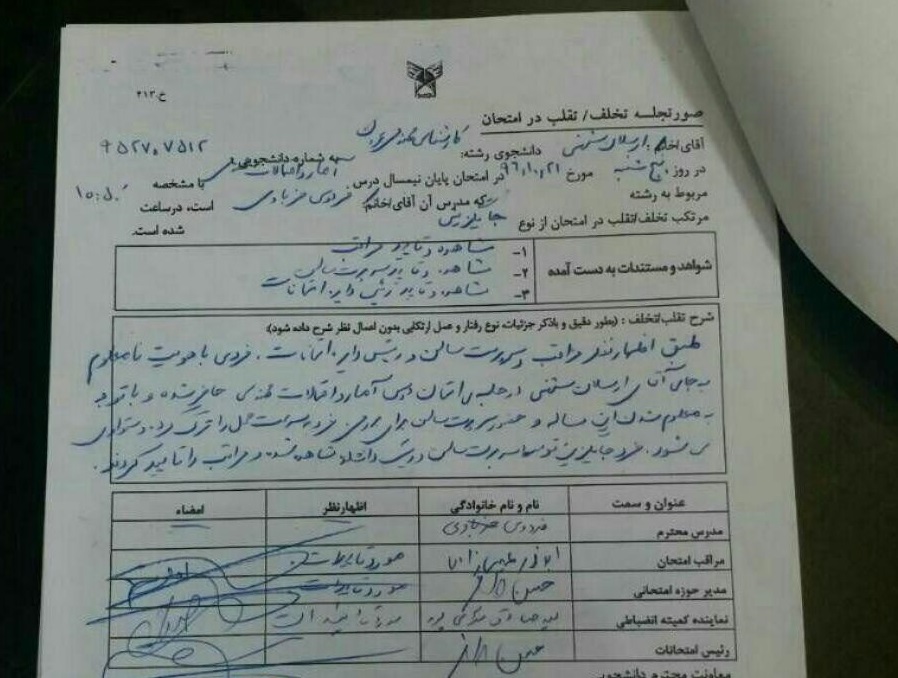 خ.۲۱۳
صورتجلسه تخلف/ تقلب در امتحان
آقای/خانم: ارسلان دانشجوی رشته: کارشناسی به شماره دانشجویی: ۹۵۲۷۰۷۵۱۲
در روز پنج شنبه مورخ ۹۶/۱۰/۲۱ در امتحان پایان نیمسال درس آمار و احتمالات با مشخصه
مربوط به رشته که مدرس آن آقای/خانم: فردوس است، در ساعت ۱۰:
مرتکب تخلف/تقلب در امتحان از نوع جایگزینی شده است.
شواهد و مستندات به دست آمده
۱- مشاهده و تایید مراقب
۲- مشاهده و تایید سرپرست سالن
۳- مشاهده و تایید رئیس دایره امتحانات
شرح تقلب/تخلف : (بطور دقیق و باذکر جزئیات، نوع رفتار و عمل ارتکابی بدون اعمال نظر شرح داده شود)
طبق اظهار نظر مراقب و سرپرست سالن و رئیس دایره امتحانات، فردی با هویت نامعلوم
به جای آقای ارسلان در جلسه امتحان درس آمار و احتمالات مهندسی حاضر شده و با توجه
به معلوم شدن این مساله و حضور سرپرست سالن برای بررسی فرد به سرعت محل را ترک
می شود. فرد جایگزین توسط سرپرست سالن مشاهده شده و مراقب را تایید کردند.
عنوان و سمت نام و نام خانوادگی اظهارنظر امضاء
مدرس محترم فردوس
مراقب امتحان مورد تایید است
مدیر حوزه امتحانی حسن مورد تایید است
نماینده کمیته انضباطی
رئیس امتحانات حسن
معاونت محترم دانشجویی